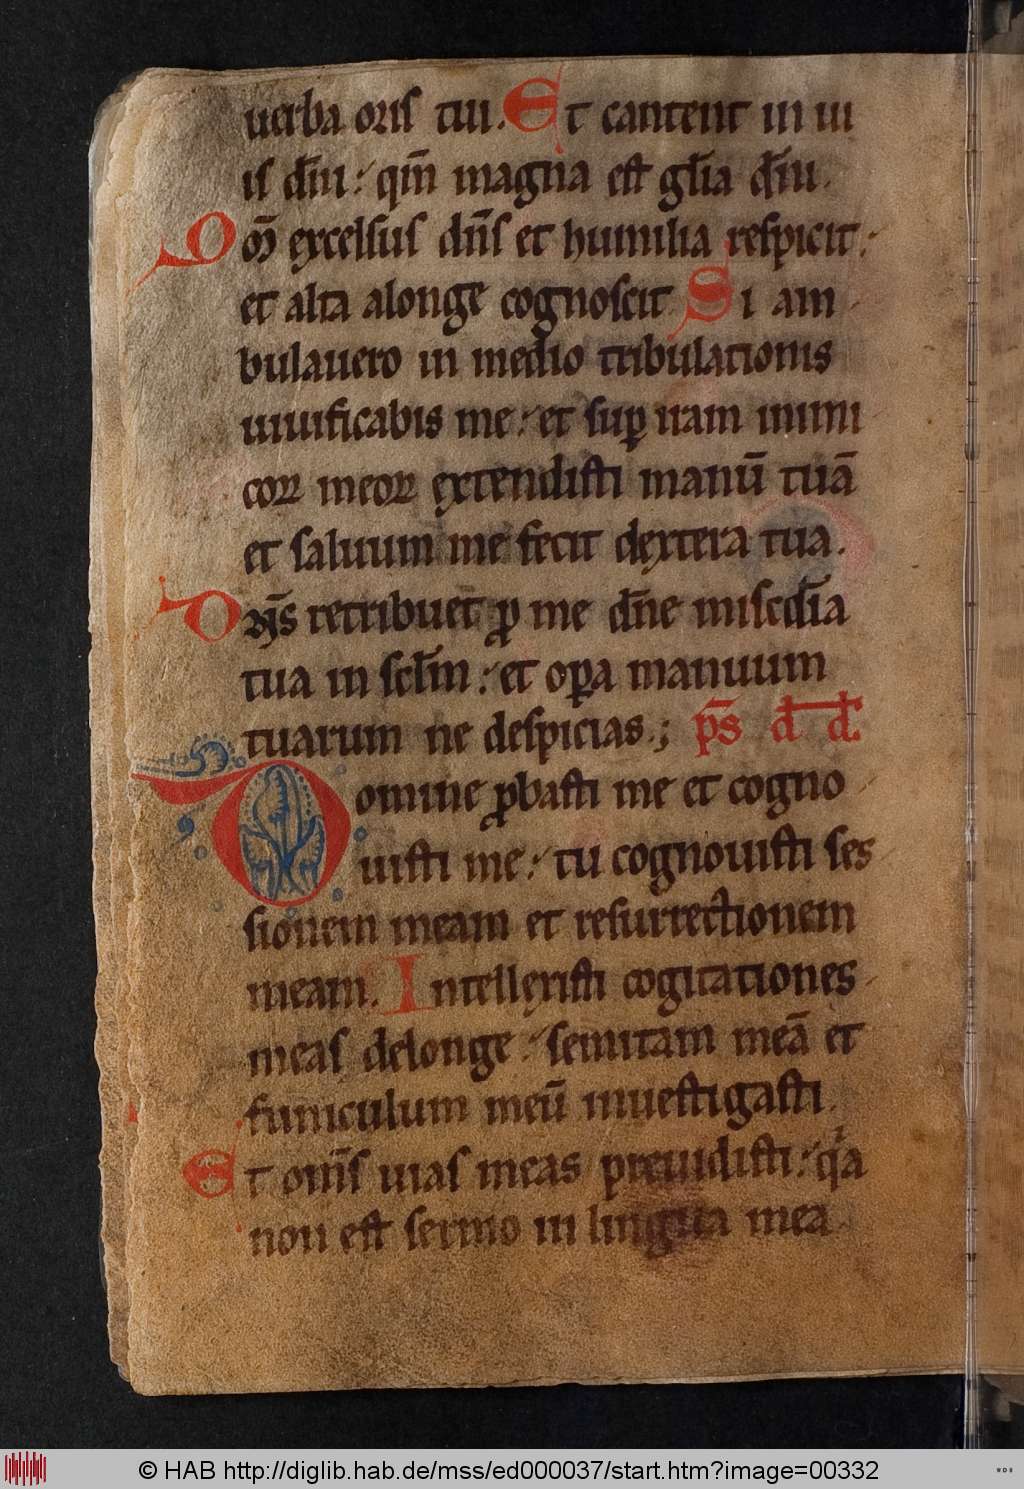 uerba oris tui. Et cantent in ui
is dn̄i: qm̄ magna est gl̄ia dn̄i.
Qm̄ excelsus dn̄s et humilia respicit:
et alta alonge cognoscit Si am
bulauero in medio tribulationis
uiuificabis me: et suꝑ iram inimi
coꝝ meoꝝ extendisti manū tuā
et saluum me fecit dextera tua.
Dn̄s retribuet ꝓ me dn̄e misc̄dia
tua in sc̄lm: et oꝑa manuum
tuarum ne despicias.; ps̄ d̄ d̄.
Domine ꝓbasti me et cogno
uisti me: tu cognouisti ses
sionem meam et resurrectionem
meam. Intellexisti cogitationes
meas delonge: semitam meā et
funiculum meū inuestigasti.
Et om̄s uias meas preuidisti: qͥa
non est sermo in lingua mea
© HAB http://diglib.hab.de/mss/ed000037/start.htm?image=00332